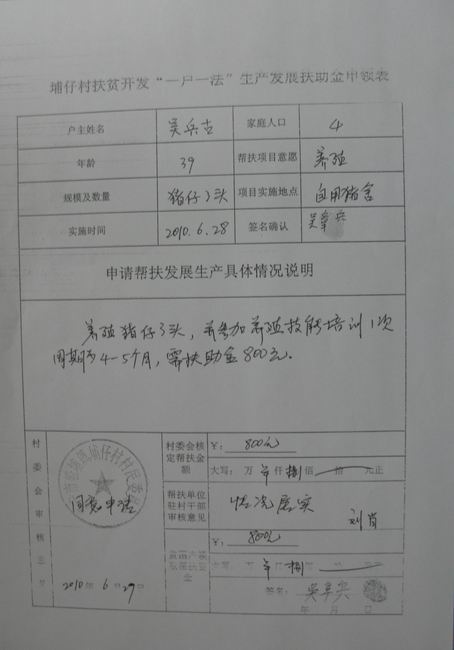 埔仔村扶贫开发“一户一法”生产发展扶助金申领表
户主姓名 吴 家庭人口 4
年龄 39 帮扶项目意愿 养殖
规模及数量 猪仔3头 项目实施地点 自用猪舍
实施时间 2010.6.28 签名确认 吴
申请帮扶发展生产具体情况说明
养殖猪仔3头，并参加养殖技能培训1次
周期为4-5个月，需扶助金800元.
村委会审核意见
埔仔村村民委员会
同意申请
2010年6月29
村委会核定帮扶金额
￥：800元
大写：万 零仟 捌佰 拾 元正
帮扶单位驻村干部审核意见
情况属实
刘肖
￥：800元
大写：万 零 捌
签名：吴
年 月 日